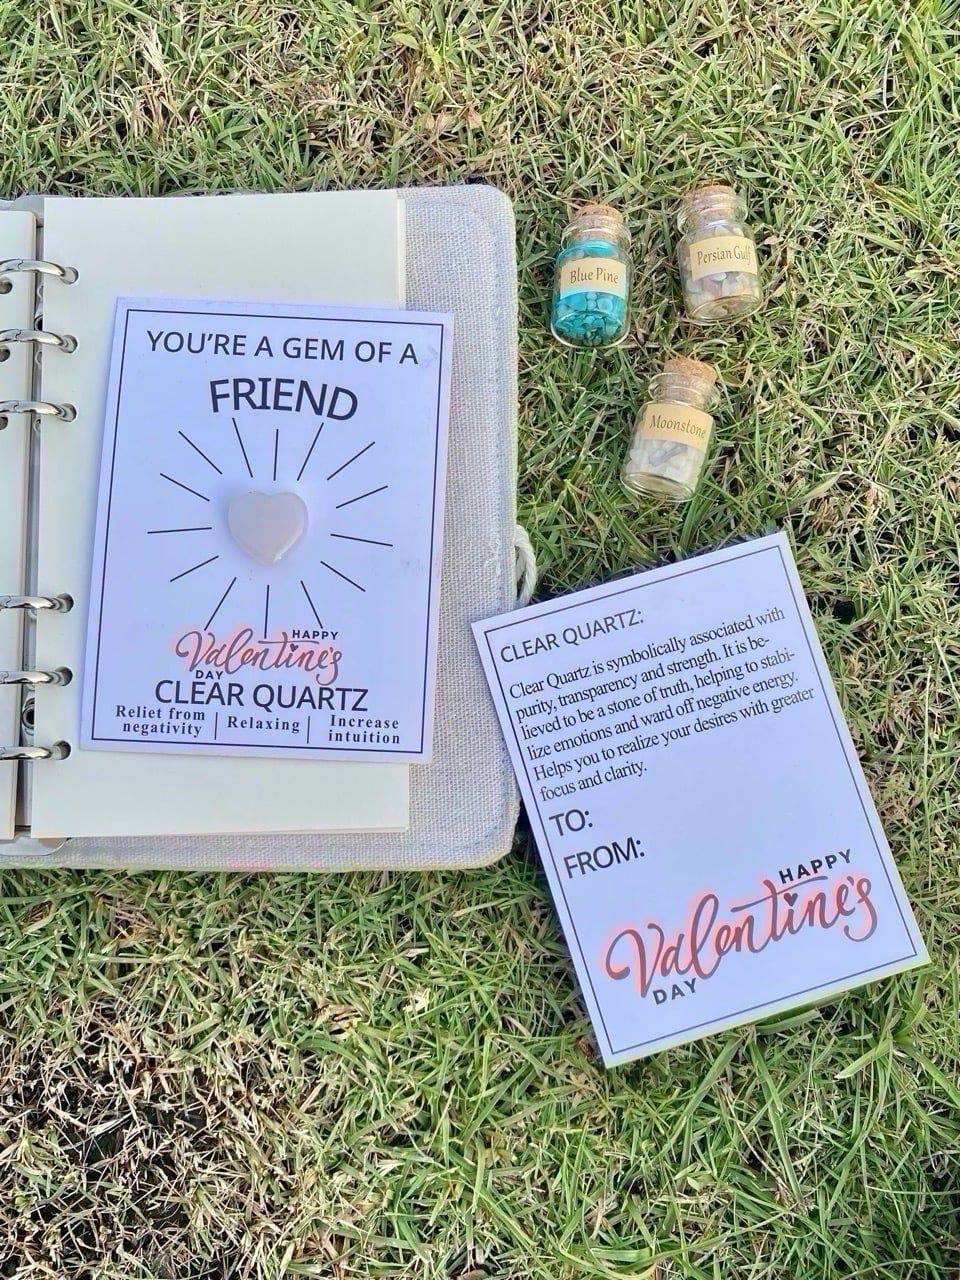 YOU'RE A GEM OF A
FRIEND
HAPPY
Valentine's
DAY
CLEAR QUARTZ
Reliet from
negativity
Relaxing
Increase
intuition
Blue Pine
Persian Gulf
Moonstone
CLEAR QUARTZ:
Clear Quartz is symbolically associated with
purity, transparency and strength. It is be-
lieved to be a stone of truth, helping to stabi-
lize emotions and ward off negative energy.
Helps you to realize your desires with greater
focus and clarity.
TO:
FROM:
HAPPY
Valentine's
DAY